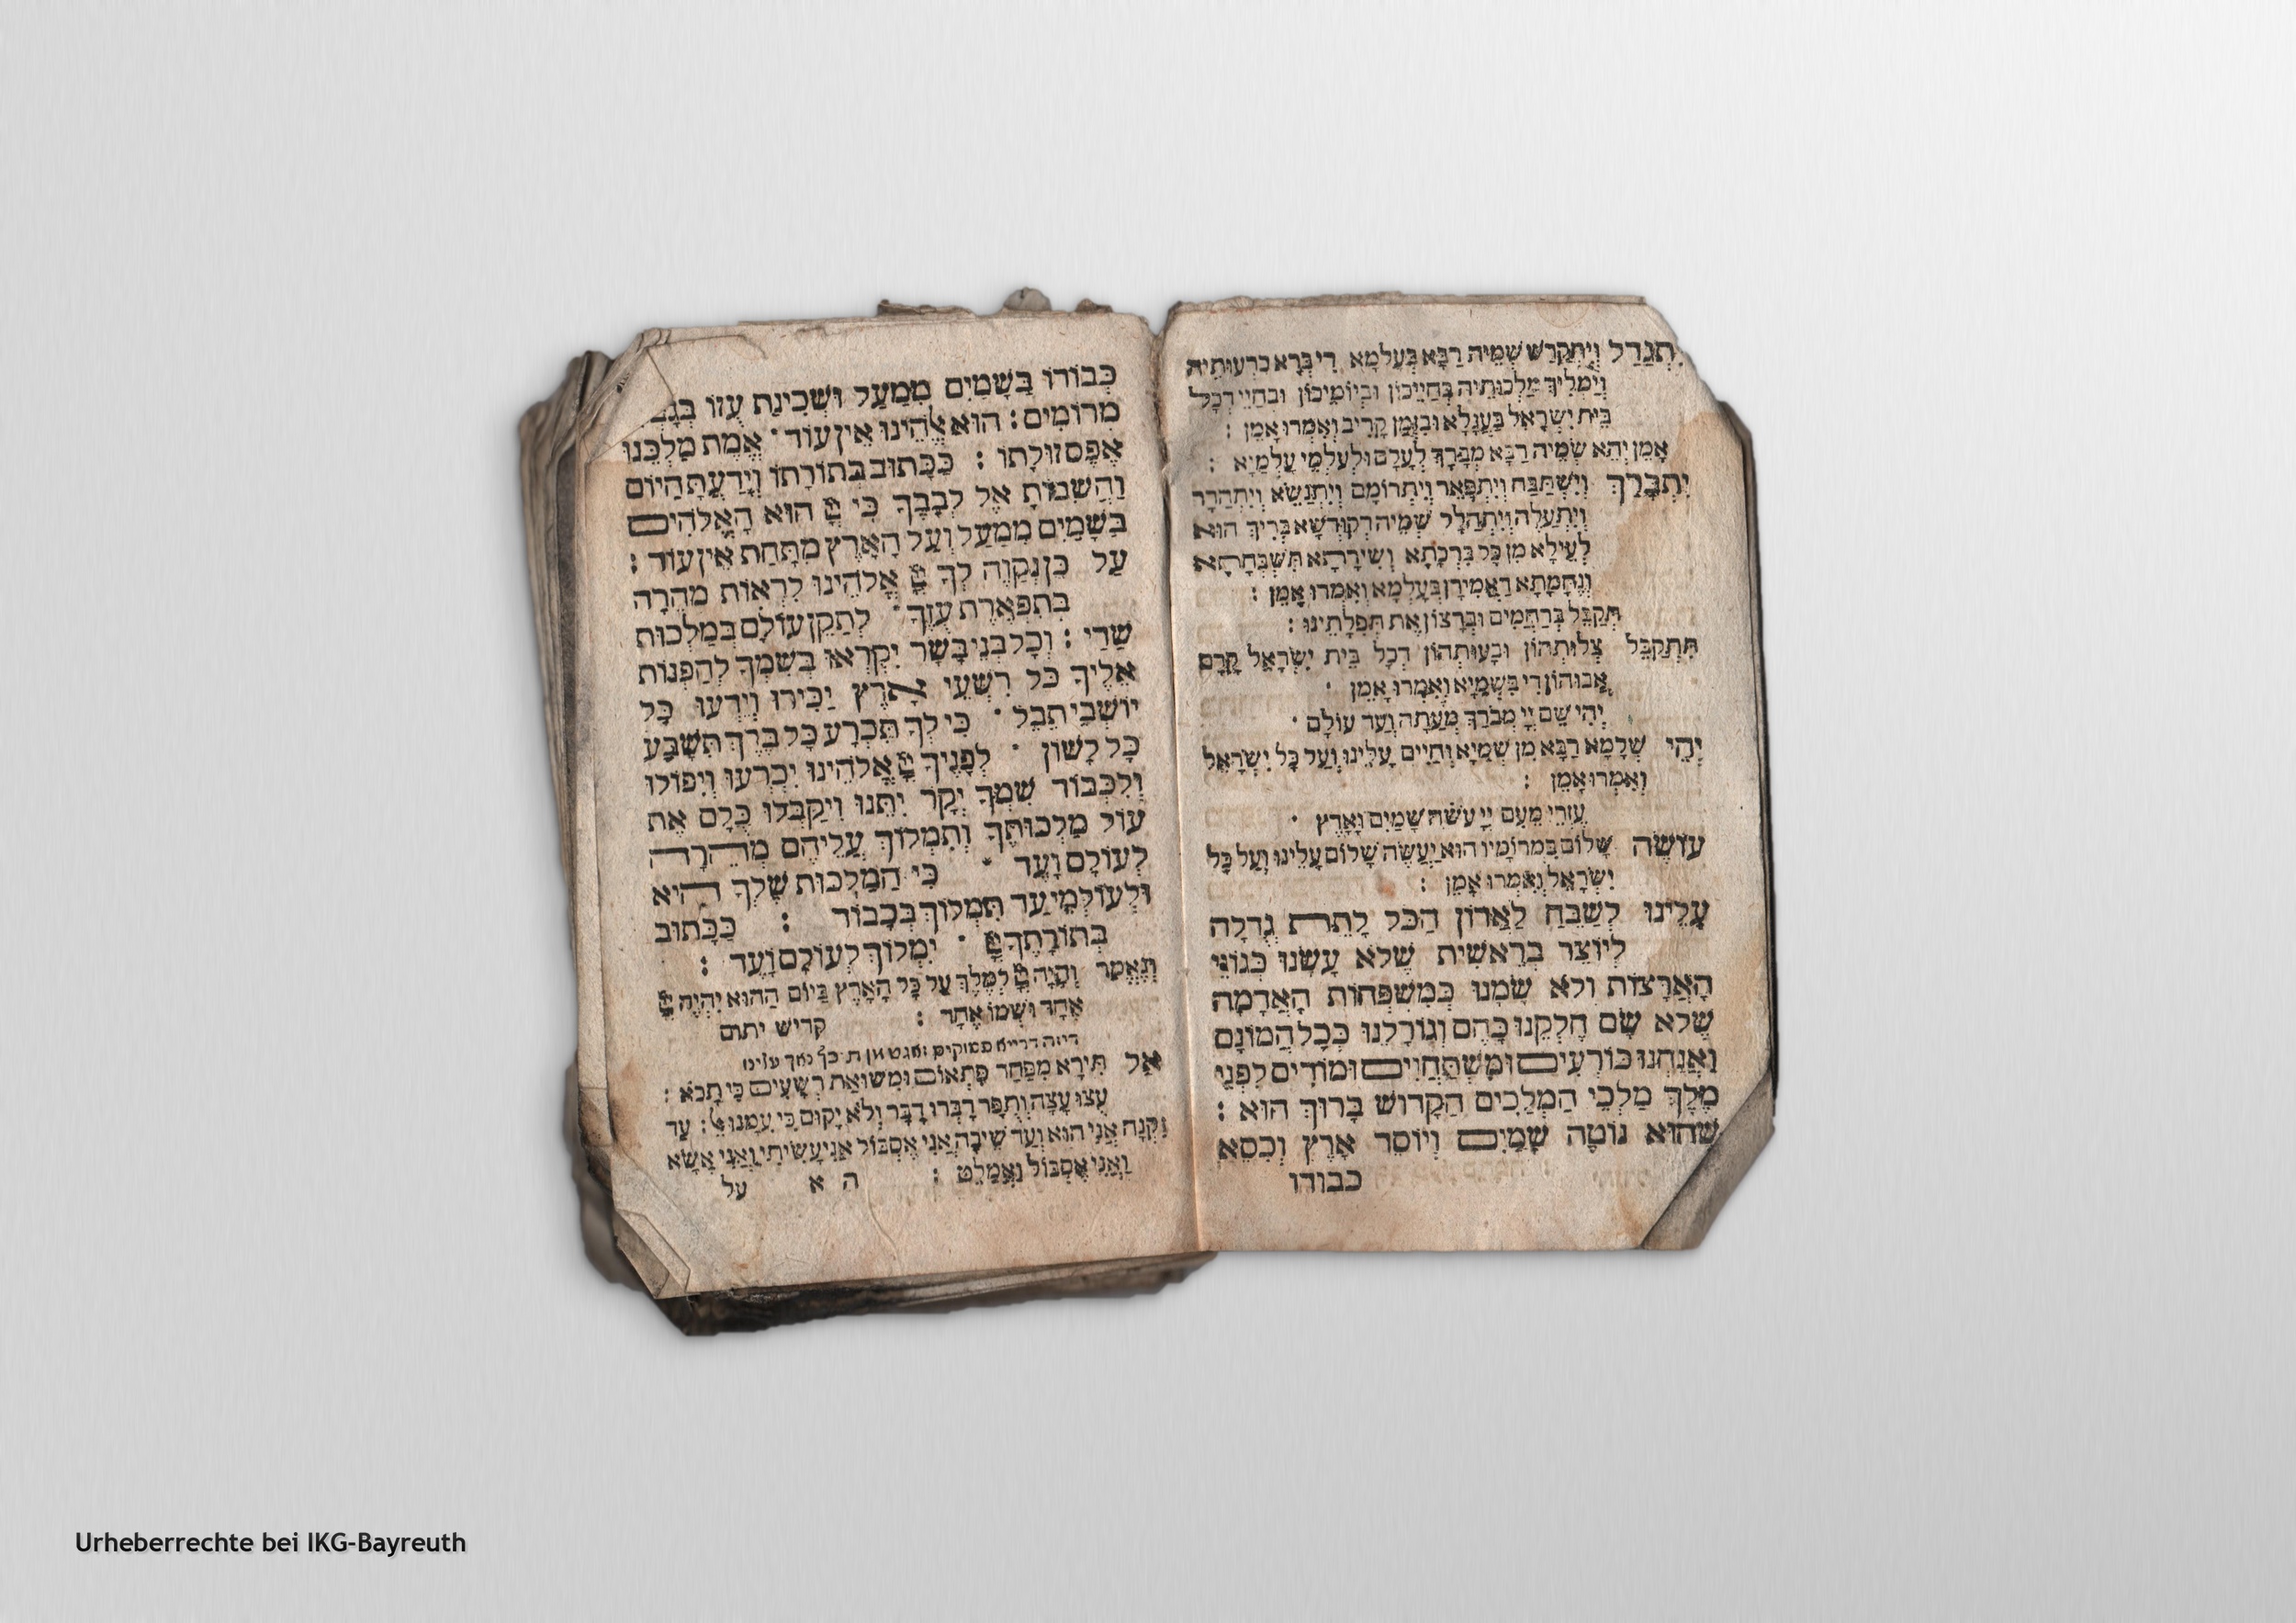 יִתְגַדַל וְיִתְקַדַשׁ שְׁמֵיהּ רַבָּא בְּעָלְמָא דִי בְרָא כִרְעוּתֵיהּ
וְיַמְלִיךְ מַלְכוּתֵיהּ בְּחַיֵיכוֹן וּבְיוֹמֵיכוֹן וּבְחַיֵי דְכָל
בֵּית יִשְׂרָאֵל בַּעֲגָלָא וּבִזְמַן קָרִיב וְאִמְרוּ אָמֵן :
אָמֵן יְהֵא שְׁמֵיהּ רַבָּא מְבָרַךְ לְעָלַם וּלְעָלְמֵי עָלְמַיָא :
יִתְבָּרַךְ וְיִשְׁתַּבַּח וְיִתְפָּאֵר וְיִתְרוֹמַם וְיִתְנַשֵׂא וְיִתְהַדָר
וְיִתְעַלֶה וְיִתְהַלָל שְׁמֵיהּ דְקוּדְשָׁא בְּרִיךְ הוּא
לְעֵילָא מִן כָּל בִּרְכָתָא וְשִׁירָתָא תֻּשְׁבְּחָתָא
וְנֶחֱמָתָא דַאֲמִירָן בְּעָלְמָא וְאִמְרוּ אָמֵן :
תְּקַבֵּל בְּרַחֲמִים וּבְרָצוֹן אֶת תְּפִלָתֵינוּ :
תִּתְקַבֵּל צְלוֹתְהוֹן וּבָעוּתְהוֹן דְכָל בֵּית יִשְׂרָאֵל קֳדָם
אֲבוּהוֹן דִי בִשְׁמַיָא וְאִמְרוּ אָמֵן ·
יְהִי שֵׁם יְיָ מְבֹרָךְ מֵעַתָּה וְעַד עוֹלָם ·
יְהֵי שְׁלָמָא רַבָּא מִן שְׁמַיָא וְחַיִים עָלֵינוּ וְעַל כָּל יִשְׂרָאֵל
וְאִמְרוּ אָמֵן :
עֶזְרִי מֵעִם יְיָ עֹשֵׂה שָׁמַיִם וָאָרֶץ ·
עוֹשֶׂה שָׁלוֹם בִּמְרוֹמָיו הוּא יַעֲשֶׂה שָׁלוֹם עָלֵינוּ וְעַל כָּל
יִשְׂרָאֵל וְאִמְרוּ אָמֵן :
עָלֵינוּ לְשַׁבֵּחַ לַאֲדוֹן הַכֹּל לָתֵת גְדֻלָה
לְיוֹצֵר בְּרֵאשִׁית שֶׁלֹא עָשָׂנוּ כְּגוֹיֵי
הָאֲרָצוֹת וְלֹא שָׂמָנוּ כְּמִשְׁפְּחוֹת הָאֲדָמָה
שֶׁלֹא שָׂם חֶלְקֵנוּ כָּהֶם וְגוֹרָלֵנוּ כְּכָל הֲמוֹנָם
וַאֲנַחְנוּ כּוֹרְעִים וּמִשְׁתַּחֲוִים וּמוֹדִים לִפְנֵי
מֶלֶךְ מַלְכֵי הַמְלָכִים הַקָדוֹשׁ בָּרוּךְ הוּא :
שֶׁהוּא נוֹטֶה שָׁמַיִם וְיוֹסֵד אָרֶץ וְכִסֵא
כבודו
כְּבוֹדוֹ בַּשָׁמַיִם מִמַעַל וּשְׁכִינַת עֻזוֹ
מְרוֹמִים : הוּא אֱלֹהֵינוּ אֵין עוֹד · אֱמֶת מַלְכֵּנוּ
אֶפֶס זוּלָתוֹ : כַּכָּתוּב בְּתוֹרָתוֹ וְיָדַעְתָּ הַיוֹם
וַהֲשֵׁבוֹתָ אֶל לְבָבֶךָ כִּי יְיָ הוּא הָאֱלֹהִים
בַּשָׁמַיִם מִמַעַל וְעַל הָאָרֶץ מִתָּחַת אֵין עוֹד :
עַל כֵּן נְקַוֶה לְךָ יְיָ אֱלֹהֵינוּ לִרְאוֹת מְהֵרָה
בְּתִפְאֶרֶת עֻזֶךָ · לְתַקֵן עוֹלָם בְּמַלְכוּת
שַׁדַי : וְכָל בְּנֵי בָשָׂר יִקְרְאוּ בִשְׁמֶךָ לְהַפְנוֹת
אֵלֶיךָ כֹּל רִשְׁעֵי אָרֶץ יַכִּירוּ וְיֵדְעוּ כָּל
יוֹשְׁבֵי תֵבֵל · כִּי לְךָ תִּכְרַע כָּל בֶּרֶךְ תִּשָׁבַע
כָּל לָשׁוֹן · לְפָנֶיךָ יְיָ אֱלֹהֵינוּ יִכְרְעוּ וְיִפּוֹלוּ
וְלִכְבוֹד שִׁמְךָ יְקָר יִתֵּנוּ וִיקַבְּלוּ כֻלָם אֶת
עוֹל מַלְכוּתֶךָ וְתִמְלוֹךְ עֲלֵיהֶם מְהֵרָה
לְעוֹלָם וָעֶד · כִּי הַמַלְכוּת שֶׁלְךָ הִיא
וּלְעוֹלְמֵי עַד תִּמְלוֹךְ בְּכָבוֹד : כַּכָּתוּב
בְּתוֹרָתֶךָ יְיָ · יִמְלוֹךְ לְעוֹלָם וָעֶד :
וְנֶאֱמַר וְהָיָה יְיָ לְמֶלֶךְ עַל כָּל הָאָרֶץ בַּיוֹם הַהוּא יִהְיֶה יְיָ
אֶחָד וּשְׁמוֹ אֶחָד : קדיש יתום
דיזה דרייא פסוקים זאגט מן
אַל תִּירָא מִפַּחַד פִּתְאוֹם וּמִשׁוֹאַת רְשָׁעִים כִּי תָבֹא :
עֻצוּ עֵצָה וְתֻפָר דַבְּרוּ דָבָר וְלֹא יָקוּם כִּי עִמָנוּ אֵל : עַד
זִקְנָה אֲנִי הוּא וְעַד שֵׂיבָה אֲנִי אֶסְבּוֹל אֲנִי עָשִׂיתִי וַאֲנִי אֶשָׂא
וַאֲנִי אֶסְבּוֹל וַאֲמַלֵט : ה א על
Urheberrechte bei IKG-Bayreuth